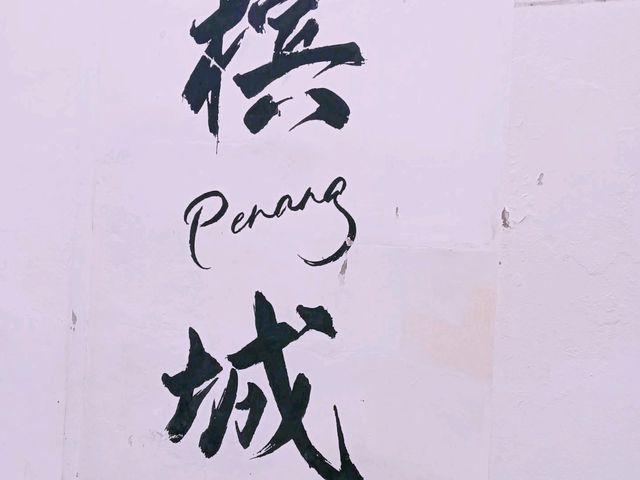 槟
Penang
城